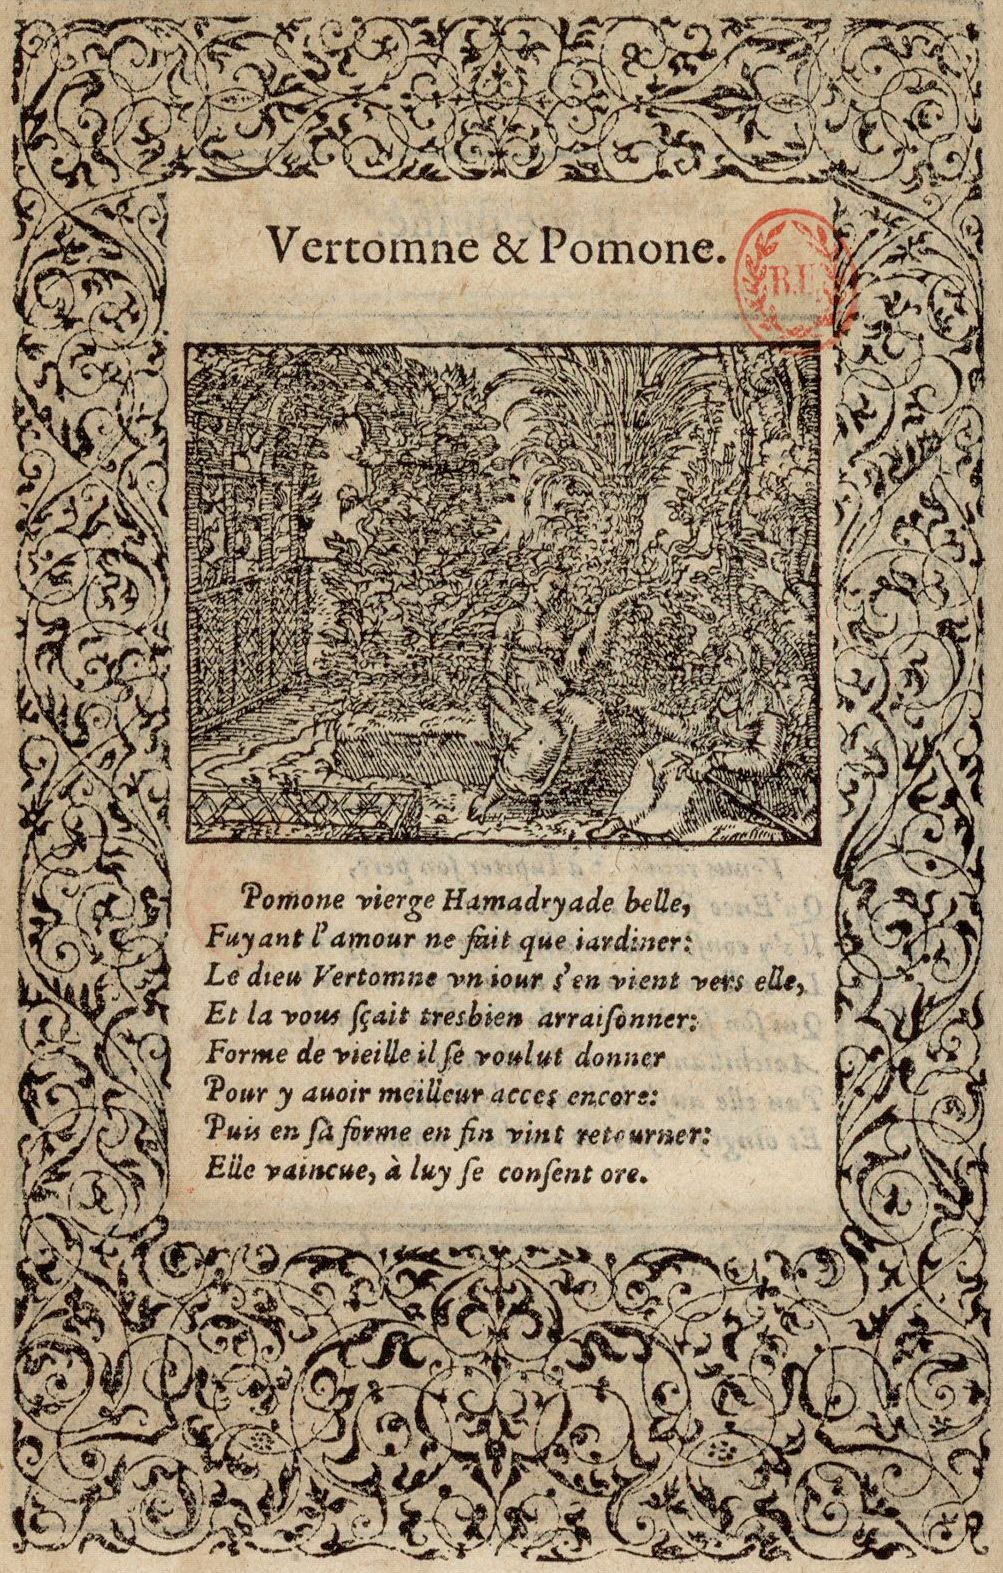 Vertomne & Pomone.
Pomone vierge Hamadryade belle,
Fuyant l'amour ne fait que iardiner:
Le dieu Vertomne vn iour s'en vient vers elle,
Et la vous sçait tresbien arraiſonner:
Forme de vieille il ſe voulut donner
Pour y auoir meilleur acces encore:
Puis en ſa forme en fin vint retourner:
Elle vaincue, à luy ſe conſent ore.